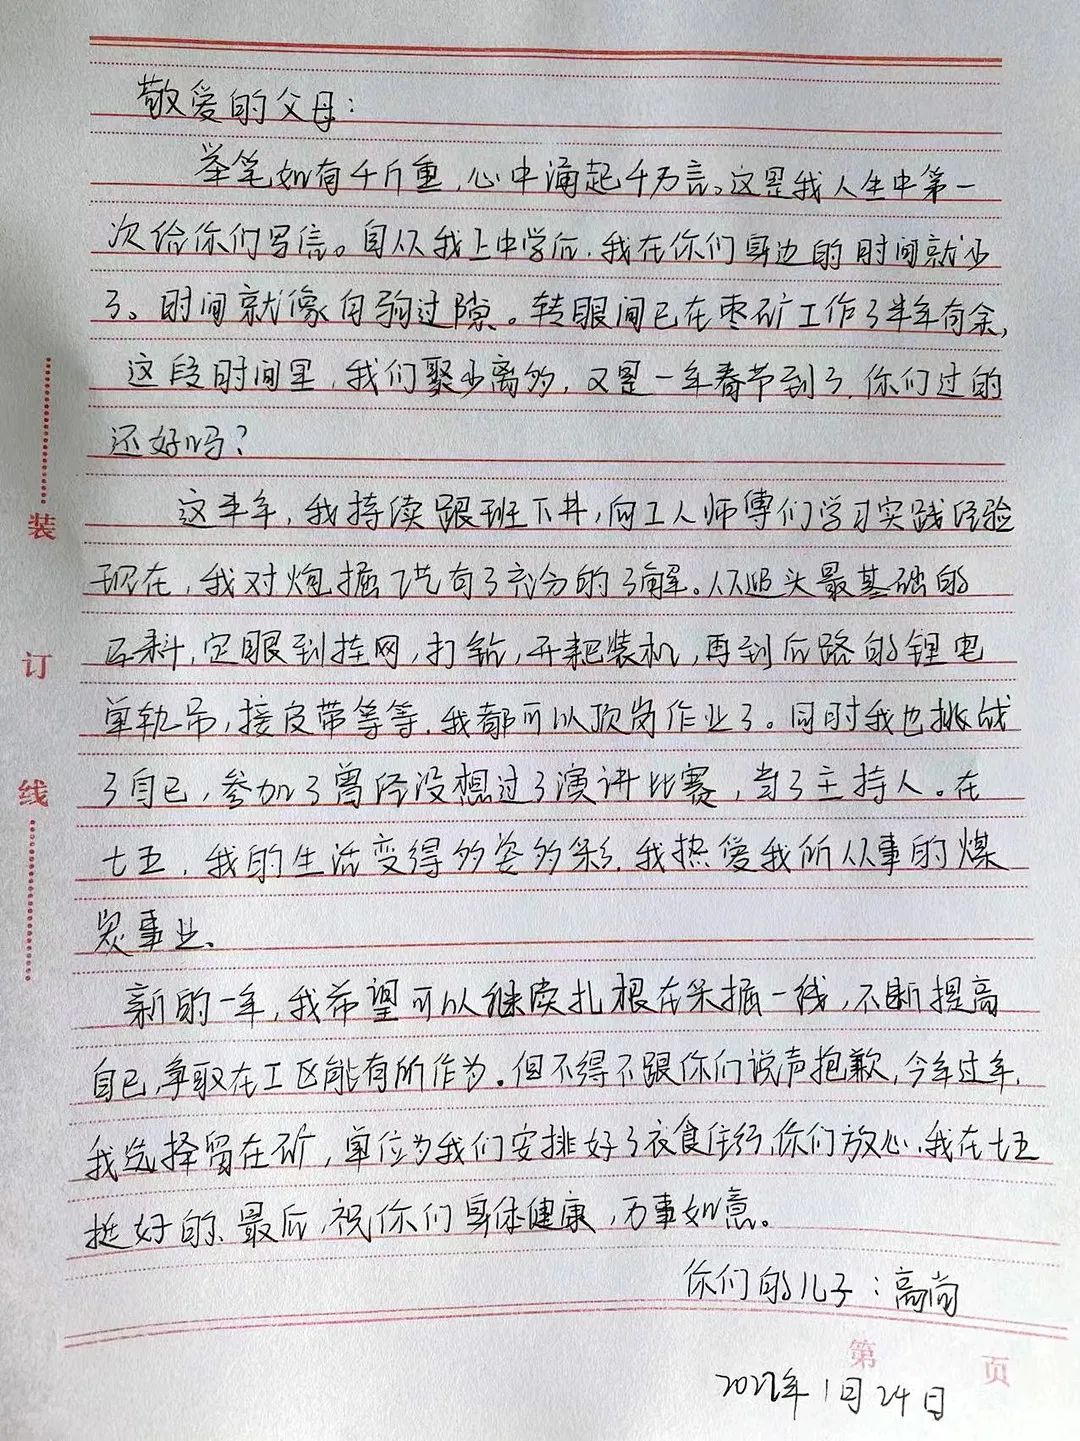 敬爱的父母：
举笔如有千斤重，心中涌起千万言。这是我人生中第一
次给你们写信。自从我上中学后，我在你们身边的时间就少
了。时间就像白驹过隙。转眼间已在枣矿工作了半年有余，
这段时间里，我们聚少离多，又是一年春节到了，你们过的
还好吗？
这半年，我持续跟班下井，向工人师傅们学习实践经验
现在，我对炮掘工艺有了充分的了解。从迎头最基础的
工料，定眼到挂网，打钻，开耙装机，再到后路的锂电
单轨吊，接皮带等等，我都可以顶岗作业了。同时我也挑战
了自己，参加了曾经没想过了演讲比赛，当了主持人。在
七五，我的生活变得多姿多彩，我热爱我所从事的煤
炭事业。
新的一年，我希望可以继续扎根在采掘一线，不断提高
自己，争取在工区能有所作为。但不得不跟你们说声抱歉，今年过年，
我选择留在矿，单位为我们安排好了衣食住行，你们放心，我在七五
挺好的、最后，祝你们身体健康，万事如意。
你们的儿子：高尚
2022年1月24日
装
订
线
第 页